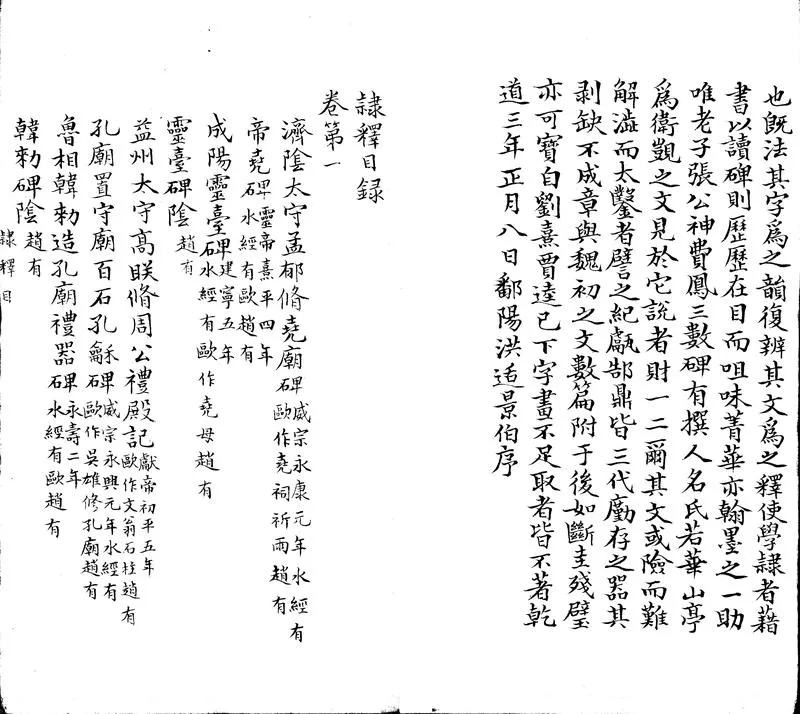 也既法其字為之韻復辨其文為之釋使學隷者藉
書以讀碑則歷歷在目而咀味菁華亦翰墨之一助
唯老子張公神費鳳三數碑有撰人名氏若華山亭
為衛覬之文見於它說者財一二爾其文或險而難
解澁而太鑿者譬之紀甗郜鼎皆三代廑存之器其
剥缺不成章與魏初之文數篇附于後如斷圭殘璧
亦可寶自劉熹賈逵已下字畫不足取者皆不著乾
道三年正月八日鄱陽洪适景伯序
隷釋目録
卷第一
濟陰太守孟郁脩堯廟碑威宗永康元年水經有歐作堯祠祈雨趙有
帝堯碑靈帝熹平四年水經有歐趙有
成陽靈臺碑建寧五年水經有歐作堯母趙有
靈臺碑陰趙有
益州太守高朕脩周公禮殿記獻帝初平五年歐作文翁石柱趙有
孔廟置守廟百石孔龢碑威宗永興元年水經有歐作吳雄修孔廟趙有
魯相韓勑造孔廟禮器碑永壽二年水經有歐趙有
韓勑碑陰趙有
隷釋目